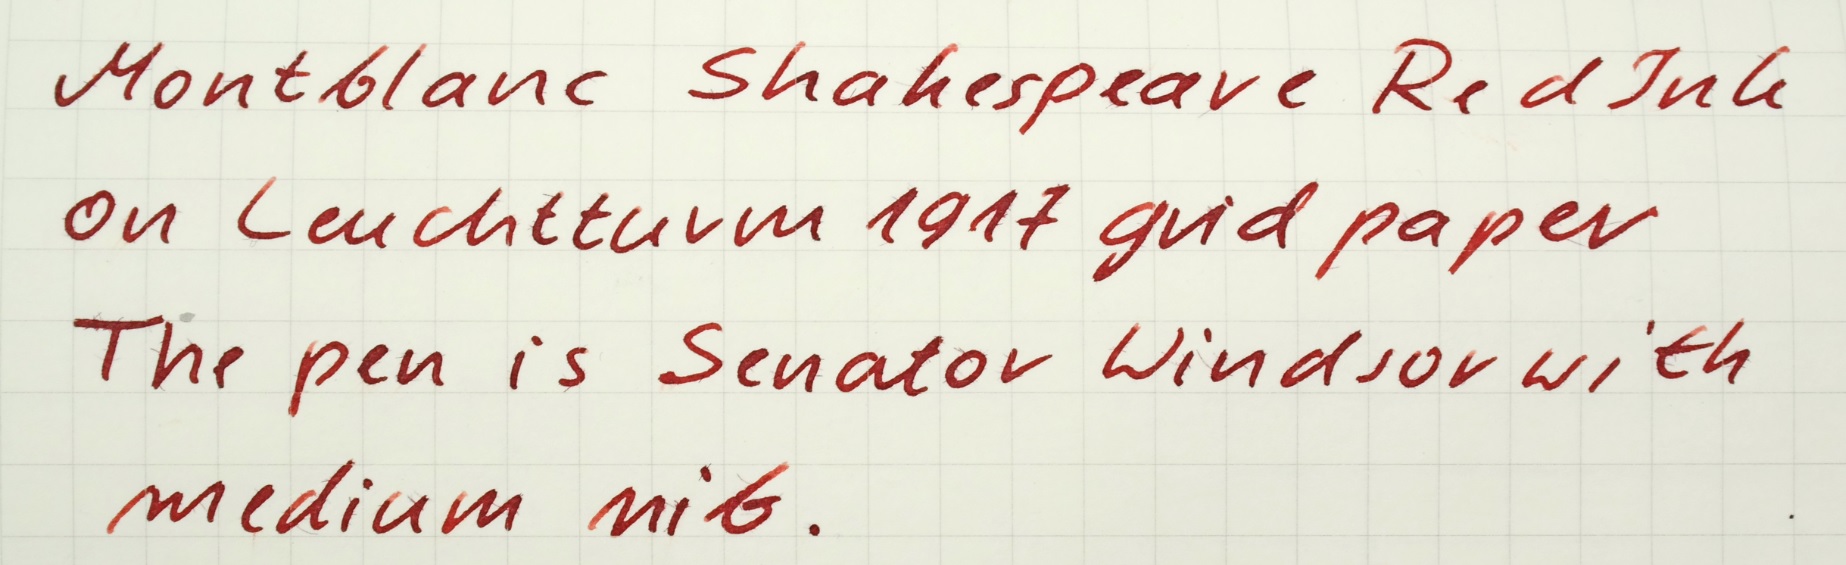 Montblanc Shakespeare Red Ink
on Leuchtturm 1917 grid paper
The pen is Senator Windsor with
medium nib.